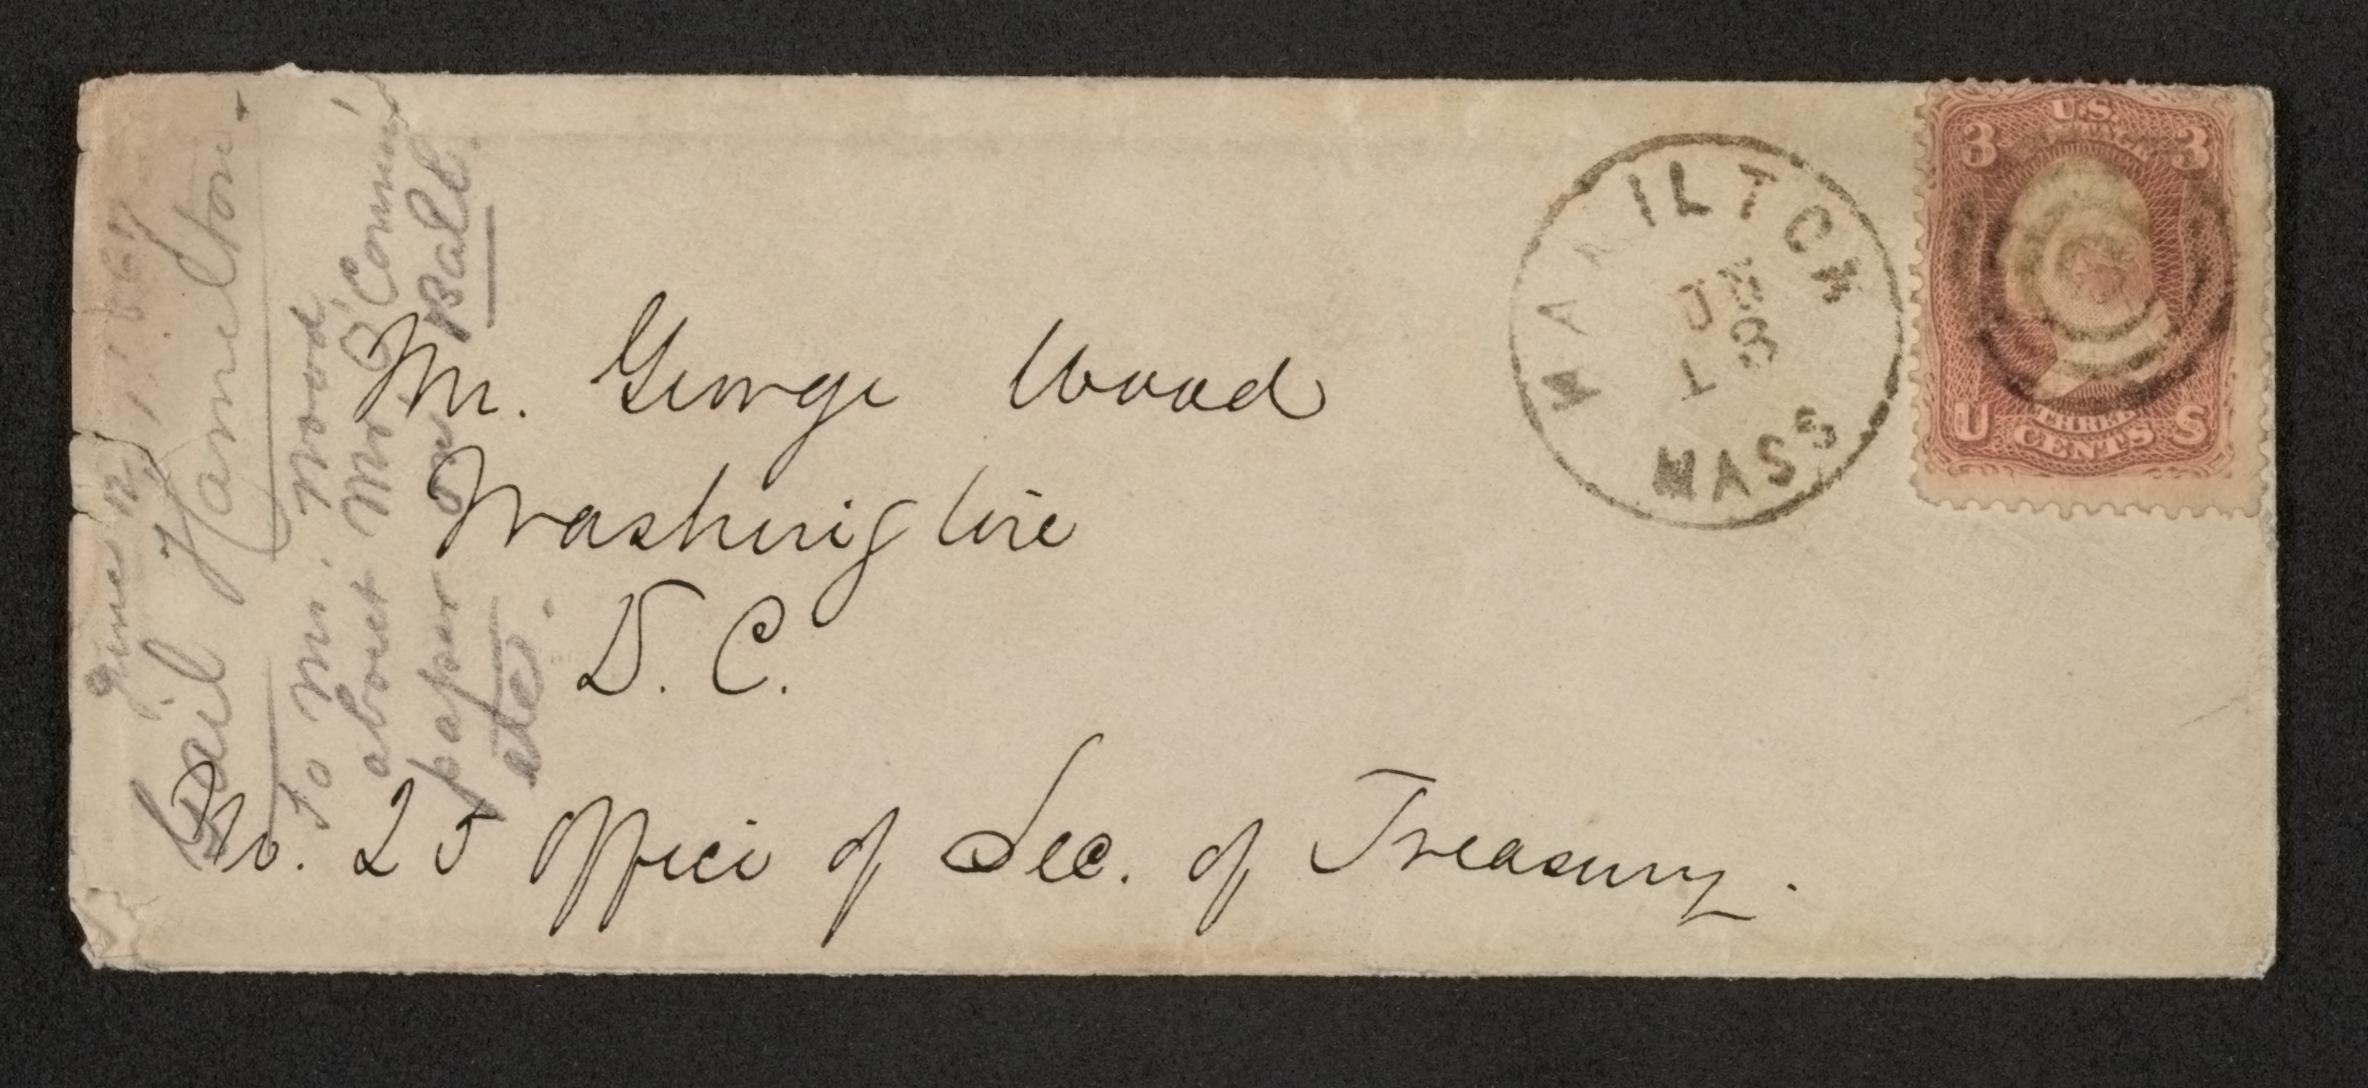 Mr. George Wood
Washington
D. C.
No. 25 Office of Sec. of Treasury.
HAMILTON
JUN
13
MASS
U.S.
POSTAGE
3 3
U S
THREE
CENTS
June 12, 1867
Gail Hamilton.
To Mr. Wood
about Mr. O'Connor's
paper on Balt.
etc.